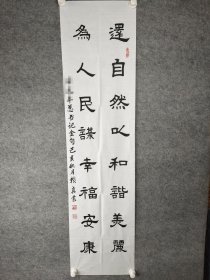 還自然以和諧美麗
為人民謀幸福安康
書記金句己亥秋月